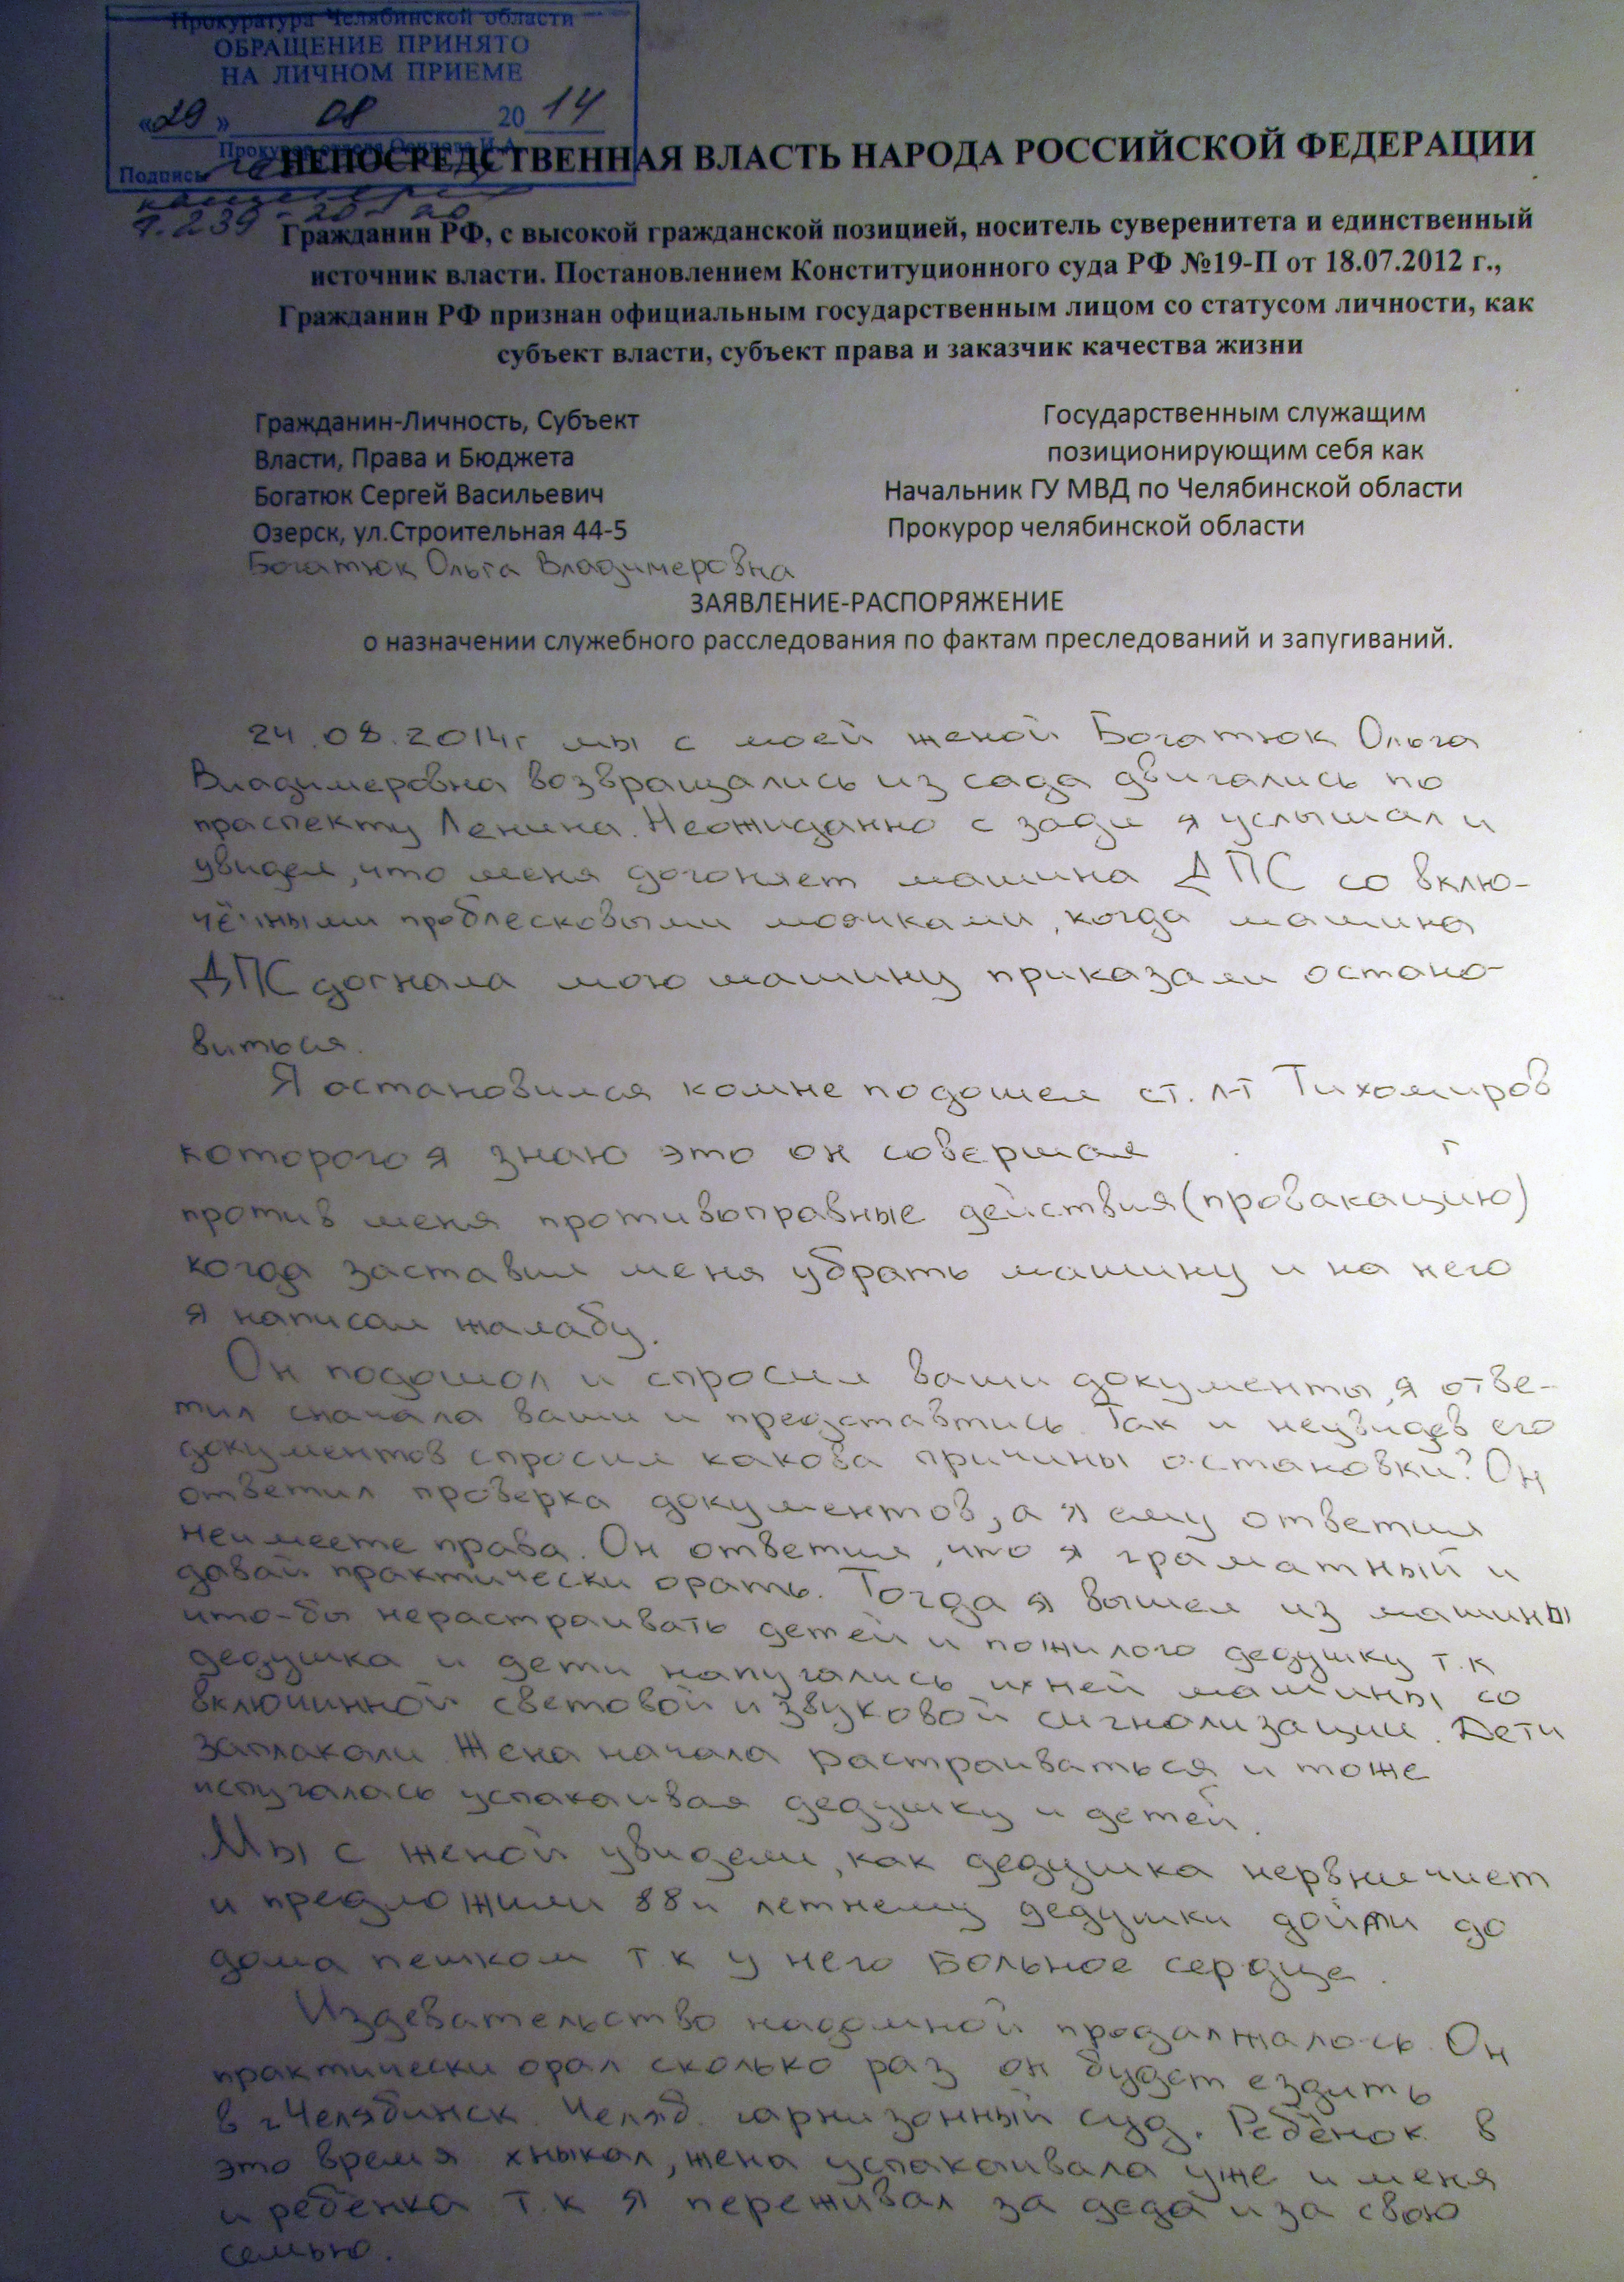 Прокуратура Челябинской области
ОБРАЩЕНИЕ ПРИНЯТО
НА ЛИЧНОМ ПРИЕМЕ
«29» 08 2014
Прокурор отдела
Подпись
НЕПОСРЕДСТВЕННАЯ ВЛАСТЬ НАРОДА РОССИЙСКОЙ ФЕДЕРАЦИИ
Гражданин РФ, с высокой гражданской позицией, носитель суверенитета и единственный
источник власти. Постановлением Конституционного суда РФ №19-П от 18.07.2012 г.,
Гражданин РФ признан официальным государственным лицом со статусом личности, как
субъект власти, субъект права и заказчик качества жизни
Гражданин-Личность, Субъект
Власти, Права и Бюджета
Богатюк Сергей Васильевич
Озерск, ул.Строительная 44-5
Богатюк Ольга Владимеровна
Государственным служащим
позиционирующим себя как
Начальник ГУ МВД по Челябинской области
Прокурор челябинской области
ЗАЯВЛЕНИЕ-РАСПОРЯЖЕНИЕ
о назначении служебного расследования по фактам преследований и запугиваний.
24.08.2014г мы с моей женой Богатюк Ольга
Владимеровна возвращались из сада двигались по
праспекту Ленина. Неожиданно с зади я услышал и
увидел, что меня догоняет машина ДПС со вклю-
чёнными проблесковыми маячками, когда машина
ДПС догнала мою машину приказали остано-
виться.
Я остановился комне подошел ст. л-т Тихомиров
которого я знаю это он совершал
против меня противоправные действия (провакацию)
когда заставил меня убрать машину и на него
я написал жалабу.
Он подошол и спросил ваши документы, я отве-
тил сначала ваши и представтись. Так и неувидев его
документов спросил какова причины остановки? Он
ответил проверка документов, а я ему ответил
неимеете права. Он ответил, что я граматный и
давай практически орать. Тогда я вышел из машины
что-бы нерастраивать детей и пожилого дедушку т.к
дедушка и дети напугались ихней машины со
включинной световой и звуковой сигнализации. Дети
заплакали. Жена начала растраиваться и тоже
испугалась успакаивая дедушку и детей.
Мы с женой увидели, как дедушка нервничиет
и предложили 88и летнему дедушки дойти до
дома пешком т.к у него больное сердце.
Издевательство надомной продалжалось. Он
практически орал сколько раз он будет ездить
в г Челябинск. Челяб. гарнизонный суд. Ребёнок в
это время хныкал, жена успакаивала уже и меня
и ребёнка т.к я переживал за деда и за свою
семью.